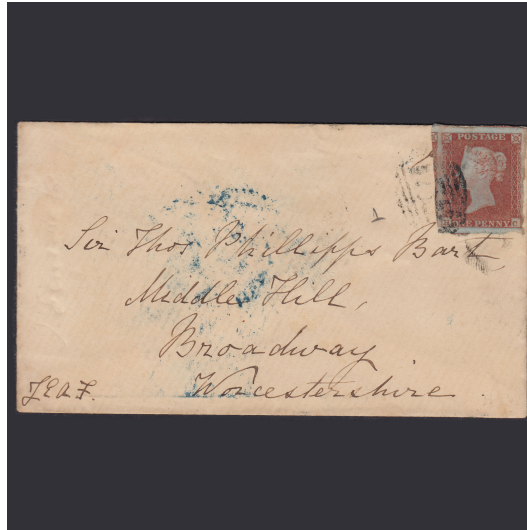 POSTAGE
ONE PENNY
Sir Thos Phillipps Bart
Middle Hill,
Broadway
Worcestershire.